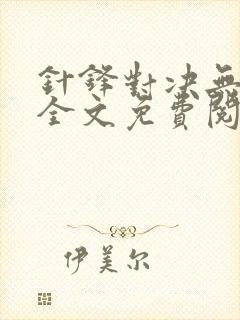 針鋒對決無
全文免費閱
伊美尔